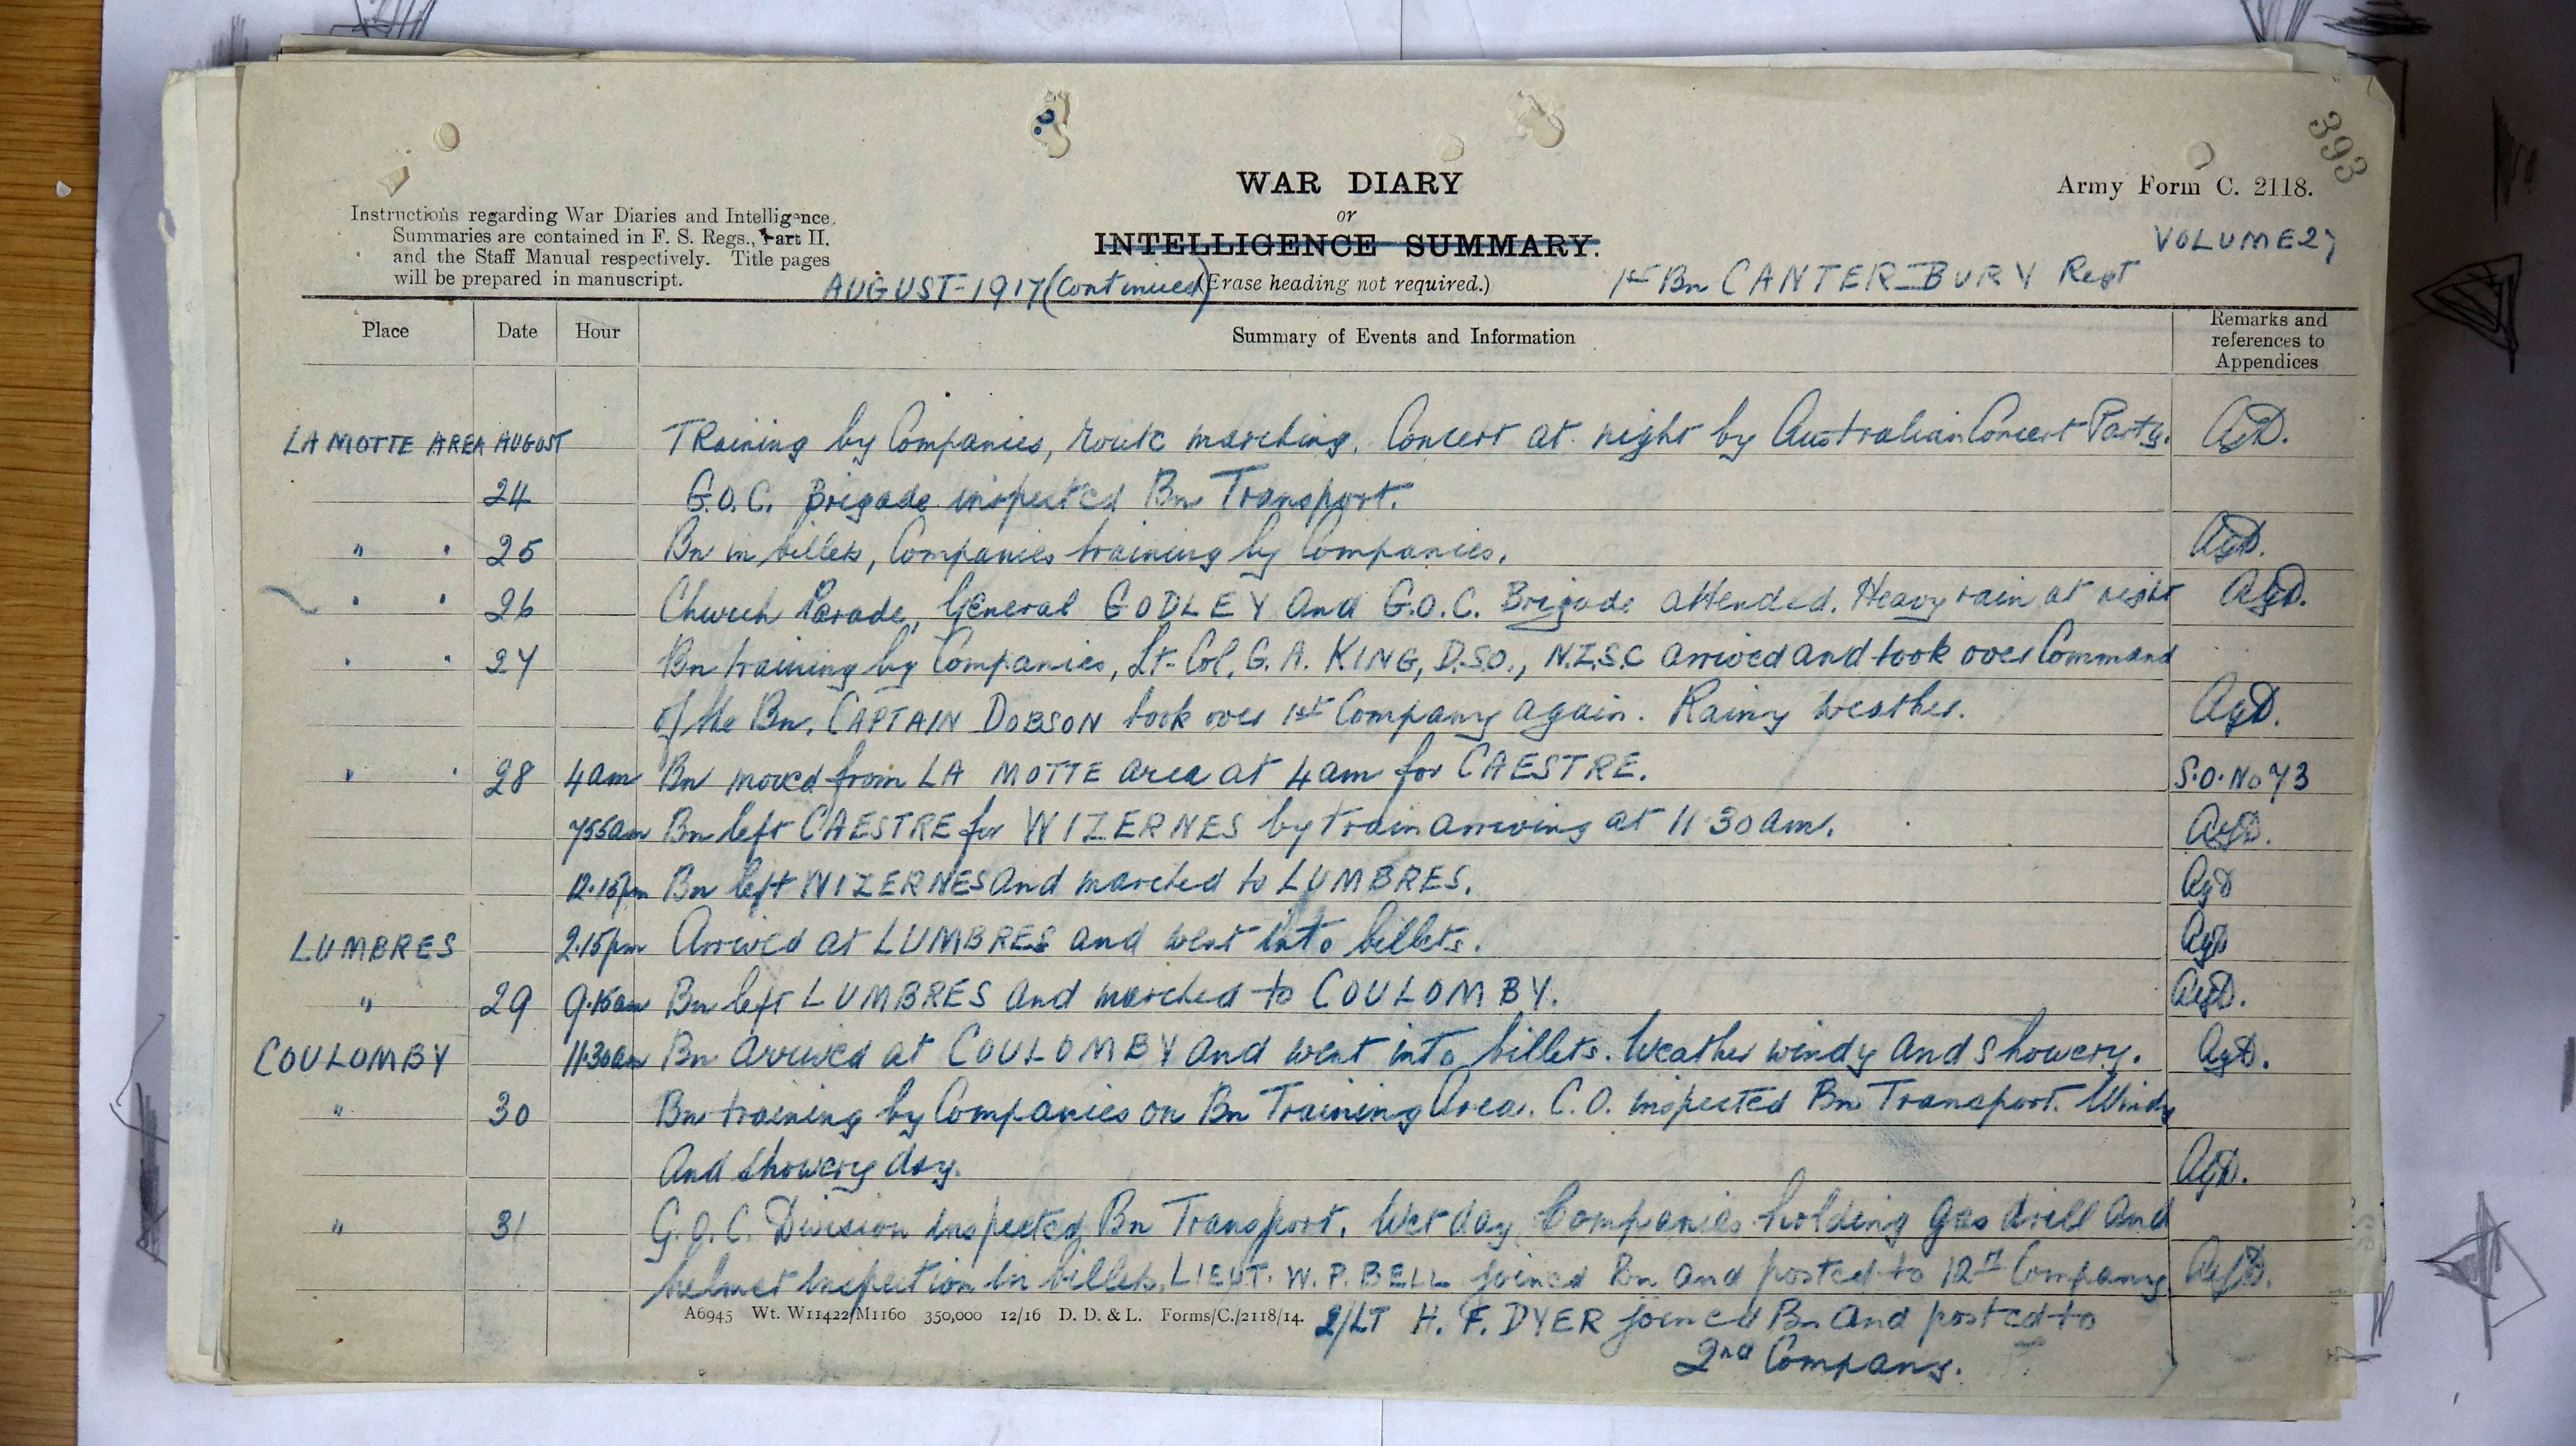 393
WAR DIARY
or
INTELLIGENCE SUMMARY.
(Erase heading not required.)
Army Form C. 2118.
VOLUME 27
Instructions regarding War Diaries and Intelligence
Summaries are contained in F. S. Regs., Part II.
and the Staff Manual respectively. Title pages
will be prepared in manuscript.
AUGUST-1917 (Continued)
1st Bn CANTERBURY Regt
Place Date Hour Summary of Events and Information Remarks and references to Appendices
LA MOTTE AREA AUGUST Training by Companies, route marching. Concert at night by Australian Concert Party. AGD.
24 G.O.C. Brigade inspected Bn Transport.
" " 25 Bn in billets, Companies training by Companies. AGD.
" " 26 Church Parade, General GODLEY and G.O.C. Brigade attended. Heavy rain at night AGD.
" " 27 Bn training by Companies, Lt-Col. G. A. KING, D.S.O., N.Z.S.C arrived and took over Command
of the Bn. CAPTAIN DOBSON took over 1st Company again. Rainy weather. AGD.
" " 28 4am Bn moved from LA MOTTE area at 4am for CAESTRE. S.O. No 73
755am Bn left CAESTRE for WIZERNES by train arriving at 11 30am. AGD.
12.15pm Bn left WIZERNES and marched to LUMBRES. AGD
LUMBRES 2.15pm Arrived at LUMBRES and went into billets. AGD
" 29 9.15am Bn left LUMBRES and marched to COULOMBY. AGD.
COULOMBY 11.30am Bn arrived at COULOMBY and went into billets. Weather windy and showery. AGD.
" 30 Bn training by Companies on Bn Training Area. C.O. inspected Bn Transport. Windy
and showery day. AGD.
" 31 G.O.C. Division inspected Bn Transport. Wet day, Companies holding gas drill and
helmet inspection in billets. LIEUT. W. P. BELL joined Bn and posted to 12th Company. AGD.
A6945 Wt. W11422/M1160 350,000 12/16 D. D. & L. Forms/C./2118/14.
2/LT H. F. DYER joined Bn and posted to
2nd Company.